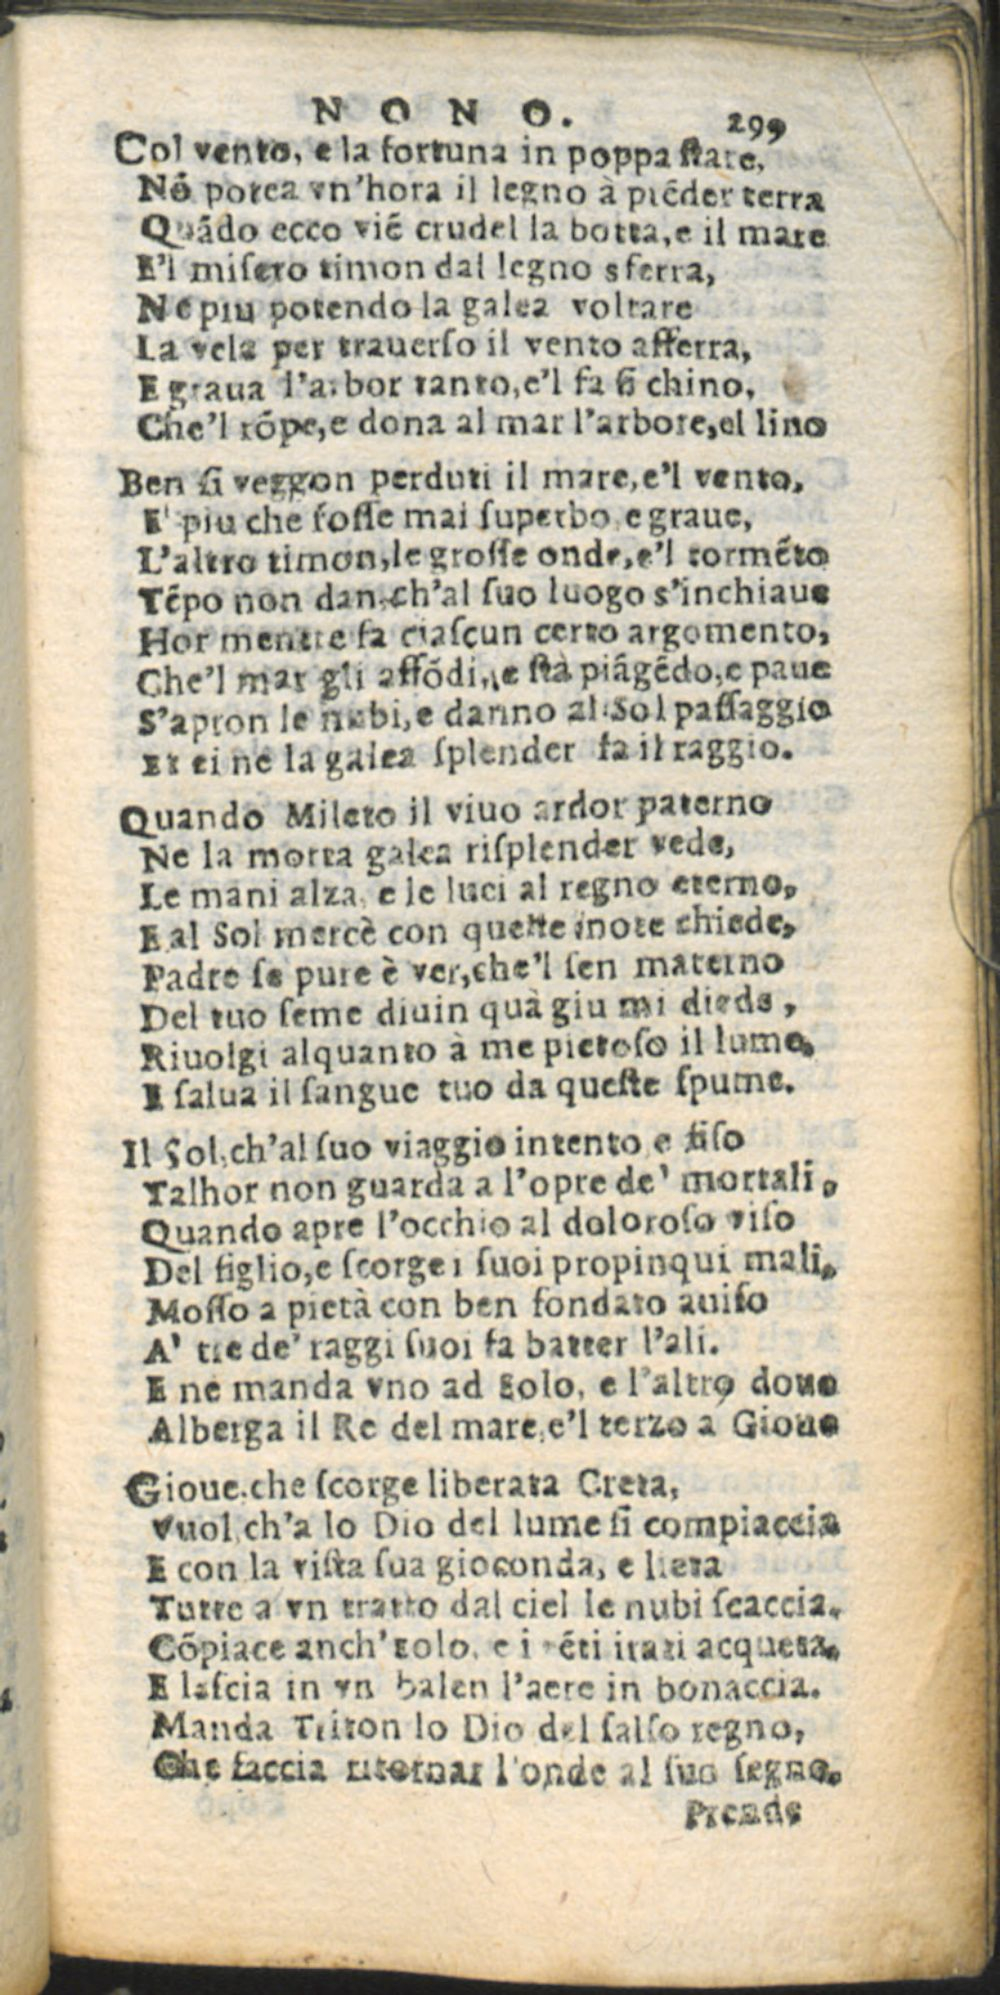 NONO. 299
Col vento, e la fortuna in poppa ſtare,
Nõ potea vn'hora il legno à piẽder terra
Quãdo ecco viẽ crudel la botta, e il mare
E'l miſero timon dal legno sferra,
Ne piu potendo la galea voltare
La vela per trauerſo il vento afferra,
E graua l'arbor tanto, e'l fa ſi chino,
Che'l rõpe, e dona al mar l'arbore, el lino
Ben ſi veggon perduti il mare, e'l vento,
E' piu che foſſe mai ſuperbo, e graue,
L'altro timon, le groſſe onde, e'l tormẽto
Tẽpo non dan, ch'al ſuo luogo s'inchiaue
Hor mentre fa ciaſcun certo argomento,
Che'l mar gli affõdi, e ſtà piãgẽdo, e paue
S'apron le nubi, e danno al Sol paſſaggio
Et ei ne la galea ſplender fa il raggio.
Quando Mileto il viuo ardor paterno
Ne la morta galea riſplender vede,
Le mani alza, e le luci al regno eterno,
E al Sol mercè con queſte note chiede,
Padre ſe pure è ver, che'l ſen materno
Del tuo ſeme diuin quà giu mi diede,
Riuolgi alquanto à me pietoſo il lume,
E ſalua il ſangue tuo da queſte ſpume.
Il Sol, ch'al ſuo viaggio intento, e fiſo
Talhor non guarda a l'opre de' mortali,
Quando apre l'occhio al doloroſo viſo
Del figlio, e ſcorge i ſuoi propinqui mali,
Moſſo a pietà con ben fondato auiſo
A' tre de' raggi ſuoi fa batter l'ali.
E ne manda vno ad Eolo, e l'altro doue
Alberga il Re del mare, e'l terzo a Gioue
Gioue, che ſcorge liberata Creta,
Vuol, ch'a lo Dio del lume ſi compiaccia
E con la viſta ſua gioconda, e lieta
Tutte a vn tratto dal ciel le nubi ſcaccia.
Cõpiace anch' Eolo, e i vẽti irati acqueta,
E laſcia in vn balen l'aere in bonaccia.
Manda Triton lo Dio del ſalſo regno,
Che faccia ritornar l'onde al ſuo ſegno.
Prende